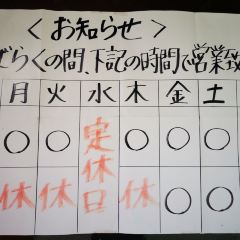 <お知らせ>
ばらくの間、下記の時間で営業致
月 火 水 木 金 土
○ ○ 定休日 ○ ○ ○
休 休 休 ○ ○